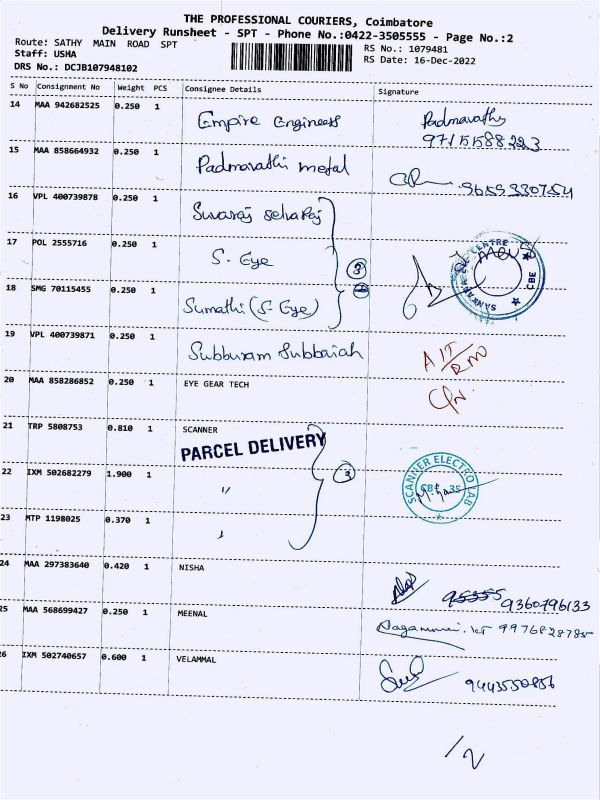 THE PROFESSIONAL COURIERS, Coimbatore
Delivery Runsheet - SPT - Phone No.:0422-3505555 - Page No.:2
Route: SATHY MAIN ROAD SPT
RS No.: 1079481
Staff: USHA
RS Date: 16-Dec-2022
DRS No.: DCJB107948102
S No Consignment No Weight PCS Consignee Details Signature
14 MAA 942682525 0.250 1 Empire Engineers Padmavathy
9715588223
15 MAA 858664932 0.250 1 Padmavathi metal 9659330754
16 VPL 400739878 0.250 1 Swaraj
17 POL 2555716 0.250 1 S. Eye
3
SANKARA CENTRE CBE
18 SMG 70115455 0.250 1 Sumathi (S. Eye)
19 VPL 400739871 0.250 1 Subburam Subbaiah
20 MAA 858286852 0.250 1 EYE GEAR TECH
21 TRP 5808753 0.810 1 SCANNER
PARCEL DELIVERY
3
SCANNER ELECTRO LAB
CBE 35
22 IXM 502682279 1.900 1 "
23 MTP 1198025 0.370 1
24 MAA 297383640 0.420 1 NISHA 9360796133
25 MAA 568699427 0.250 1 MEENAL 9976828785
26 IXM 502740657 0.600 1 VELAMMAL 9443550856
1/2